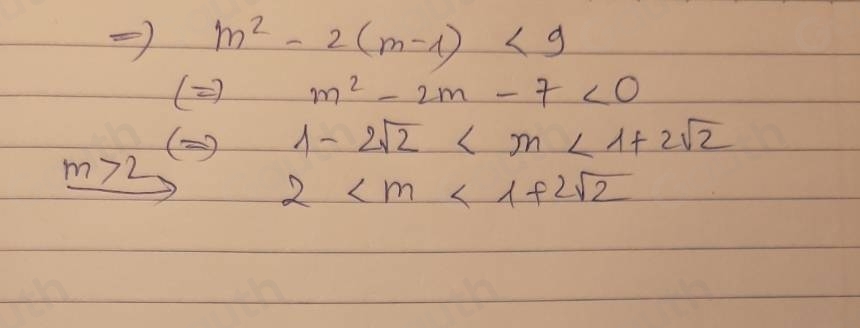 =) m² - 2(m-1) < 9
(=) m² - 2m - 7 < 0
(=) 1 - 2√2 < m < 1 + 2√2
m > 2 → 2 < m < 1 + 2√2